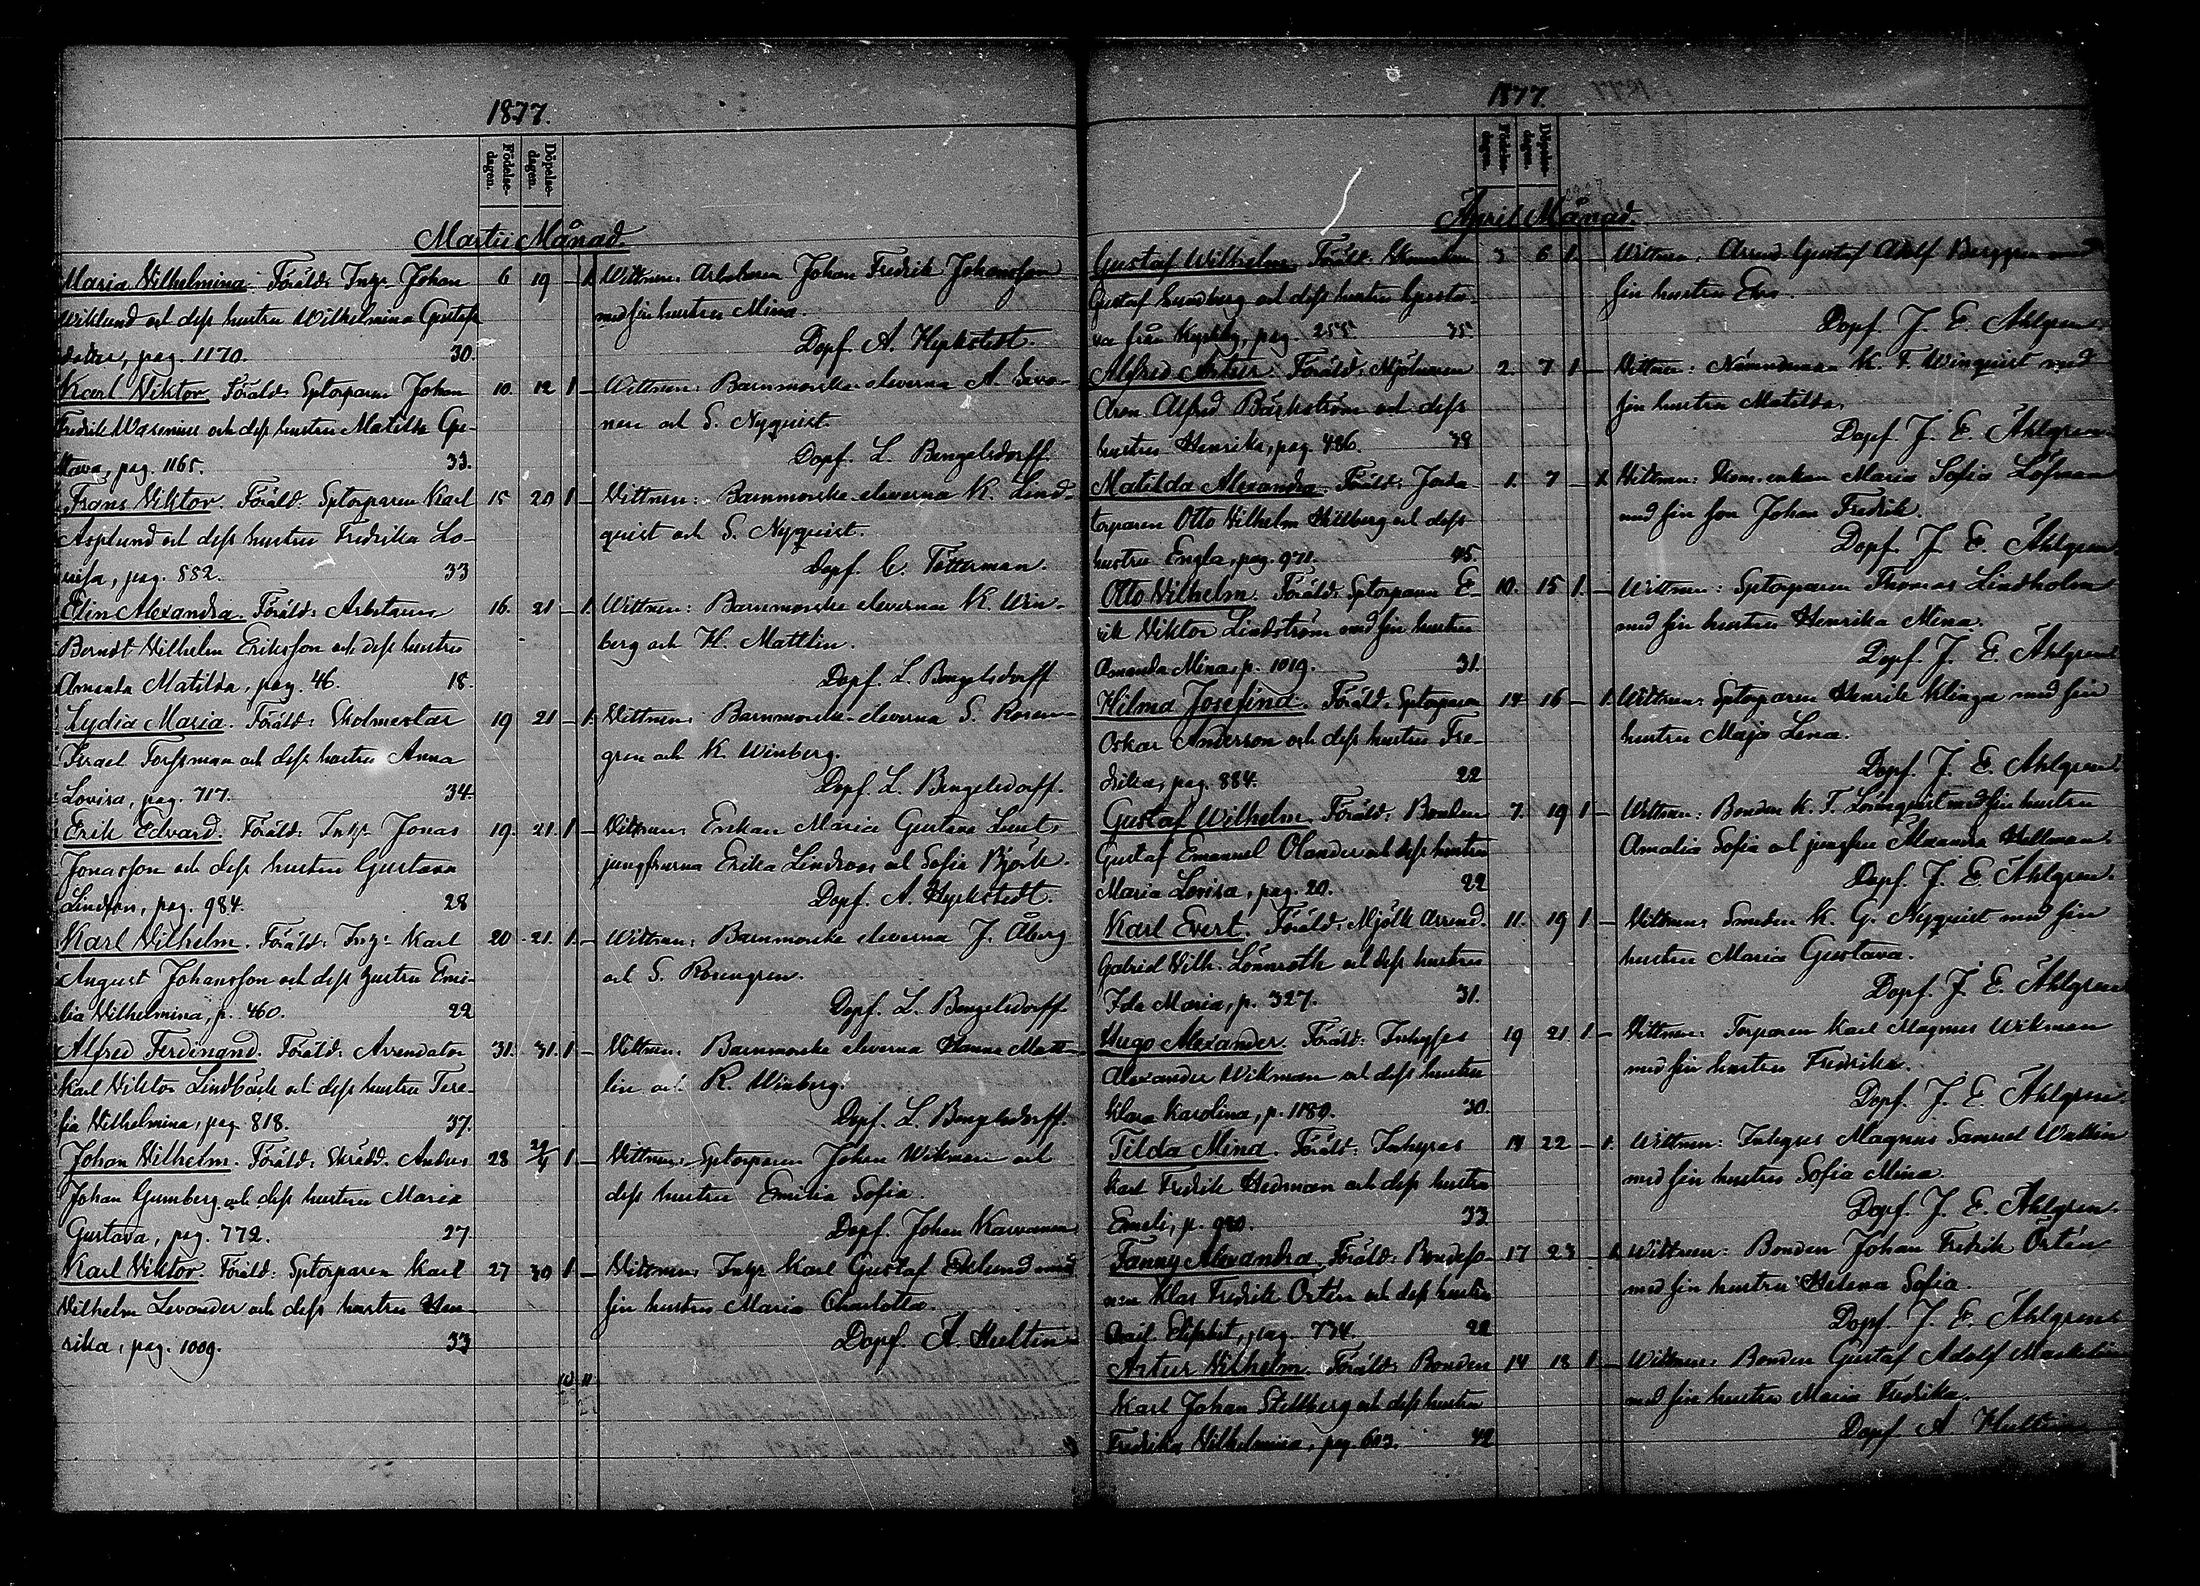 1877.
Födelse-
dagen.
Döpelse-
dagen.
Martii Månad.
Maria Vilhelmina. Föräld: Inhys Johan 6 19 – 1.
Wiklund och dess hustru Wilhelmina Gustafs
dotter, pag. 1170. 30.
Wittnen: Arbetaren Johan Fredrik Johansson
med sin hustru Mina.
Dopf. A. Hyrkstedt.
Karl Viktor. Föräld: Sptorparen Johan 10. 12 1 –
Fredrik Wasenius och dess hustru Matilda Gu-
stava, pag. 1165. 33.
Wittnen: Barnmorske eleverna A. Sivo-
nen och S. Nyquist.
Dopf. L. Bengelsdorff
Frans Viktor. Föräld: Sptorparen Karl 15 20 1 –
Asplund och dess hustru Fredrika Lo-
visa, pag. 852. 33
Vittnen: Barnmorske eleverna K. Lind-
quist och S. Nyquist.
Dopf. C. Tötterman.
Elin Alexandra. Föräld: Arbetaren 16. 21 – 1.
Berndt Vilhelm Eriksson och dess hustru
Amanda Matilda, pag. 46. 18.
Wittnen: Barnmorske eleverna K. Win-
berg och H. Mattlin.
Dopf. L. Bengelsdorff
Lydia Maria. Föräld: Skolmestar 19 21 – 1.
Israel Forssman och dess hustru Anna
Lovisa, pag. 717. 34.
Vittnen: Barnmorske-eleverna S. Rosen-
gren och K. Winberg.
Dopf. L. Bengelsdorff.
Erik Edvard. Föräld: Inhys Jonas 19. 21. 1 –
Jonasson och dess hustru Gustava
Lindfon, pag. 984. 28
Vittnen: Enkan Maria Gustava Lunt,
jungfrurna Erika Lindroos och Sofia Björk.
Dopf. A. Hyrkstedt.
Karl Vilhelm. Föräld: Inhys Karl 20 21. 1. –
August Johansson och dess hustru Emi-
lia Vilhelmina, p. 460. 22
Wittnen: Barnmorske eleverna J. Åberg
och S. Rosengren.
Dopf. L. Bengelsdorff.
Alfred Ferdinand. Föräld: Arrendator 31. 31. 1 –
Karl Viktor Lindbäck och dess hustru Tere-
sia Vilhelmina, pag 818. 37.
Vittnen: Barnmorske eleverna Hanna Matt-
lin och K. Winberg.
Dopf. L. Bengelsdorff.
Johan Vilhelm. Föräld: Skrädd. Anders 28 29/4 1 –
Johan Gumberg och dess hustru Maria
Gustava, pag. 772. 27
Vittnen: Sptorparen Johan Wikman och
dess hustru Emilia Sofia.
Dopf. Johan Karvonen
Karl Viktor. Föräld: Sptorparen Karl 27 30 1 –
Vilhelm Levander och dess hustru Hen-
rika, pag. 1009. 33
Vittnen: Inhys Karl Gustaf Eklund med
sin hustru Maria Charlotta.
Dopf. A. Hultin
10 11
1877.
Födelse-
dagen.
Döpelse-
dagen.
April Månad.
Gustaf Wilhelm. Föräld: 3 6 1 –
Gustaf Lundberg och dess hustru Gusta-
va från Kyrkby, pag. 255 35
Wittnen: Arrend Gustaf Adolf Berggren med
sin hustru Eva.
Dopf. J. E. Ahlgren
Alfred Artur. Föräld: Mjölnaren 2. 7 1 –
Aron Alfred Bäckström och dess
hustru Henrika, pag. 486. 38
Vittnen: Nämndeman K. F. Winquist med
sin hustru Matilda.
Dopf. J. E. Åhlgren
Matilda Alexandra. Föräld: Jorda 1. 7 – 1.
torparen Otto Vilhelm Hillberg och dess
hustru Engla, pag. 971. 45.
Vittnen: enkan Maria Sofia Löfman
med sin son Johan Fredrik.
Dopf. J. E. Åhlgren.
Otto Vilhelm. Föräld: Sptorparen E- 10. 15 1. –
rik Viktor Lindström med sin hustru
Amanda Mina, p. 1019. 31.
Wittnen: Sptorparen Thomas Lindholm
med sin hustru Henrika Mina.
Dopf. J. E. Åhlgren
Hilma Josefina. Föräld: Sptorparen 14 16 – 1.
Oskar Anderson och dess hustru Fre-
drika, pag. 884. 22
Wittnen: Sptorparen Henrik Klinga med sin
hustru Maja Lena.
Dopf. J. E. Åhlgren.
Gustaf Wilhelm. Föräld: Bonden 7. 19 1 –
Gustaf Emanuel Olander och dess hustru
Maria Lovisa, pag. 20. 22
Wittnen: Bonden K. F. Lönnquist med sin hustru
Amalia Sofia och jungfru Alexandra Hellman.
Dopf. J. E. Åhlgren.
Karl Evert. Föräld: Mjölk Arrend. 11. 19 1. –
Gabriel Vilh. Lönnroth och dess hustru
Ida Maria, p. 327. 31.
Vittnen: Smeden K. G. Nyquist med sin
hustru Maria Gustava.
Dopf. J. E. Åhlgren
Hugo Alexander. Föräld: Inhyses 19 21 1. –
Alexander Wikman och dess hustru
Klara Karolina, p. 1180. 30.
Vittnen: Torparen Karl Magnus Wikman
med sin hustru Fredrika.
Dopf. J. E. Åhlgren.
Tilda Mina. Föräld: Inhyses 14 22 – 1.
Karl Fredrik Hedman och dess hustru
Emeli, p. 980. 33
Wittnen: Inhyses Magnus Samuel Wallin
med sin hustru Sofia Mina.
Dopf. J. E. Åhlgren.
Fanny Alexandra. Föräld: Bondeso- 17 23 – 1.
nen Klas Fredrik Örtén och dess hustru
Elisabet, pag. 734. 22
Wittnen: Bonden Johan Fredrik Örtén
med sin hustru Helena Sofia.
Dopf. J. E. Åhlgren
Artur Vilhelm. Föräld: Bonden 14 18 1 –
Karl Johan Stellberg och dess hustru
Fredrika Vilhelmina, pag. 603. 42
Wittnen: Bonden Gustaf Adolf Maskelin
med sin hustru Maria Fredrika.
Dopf A Hultin